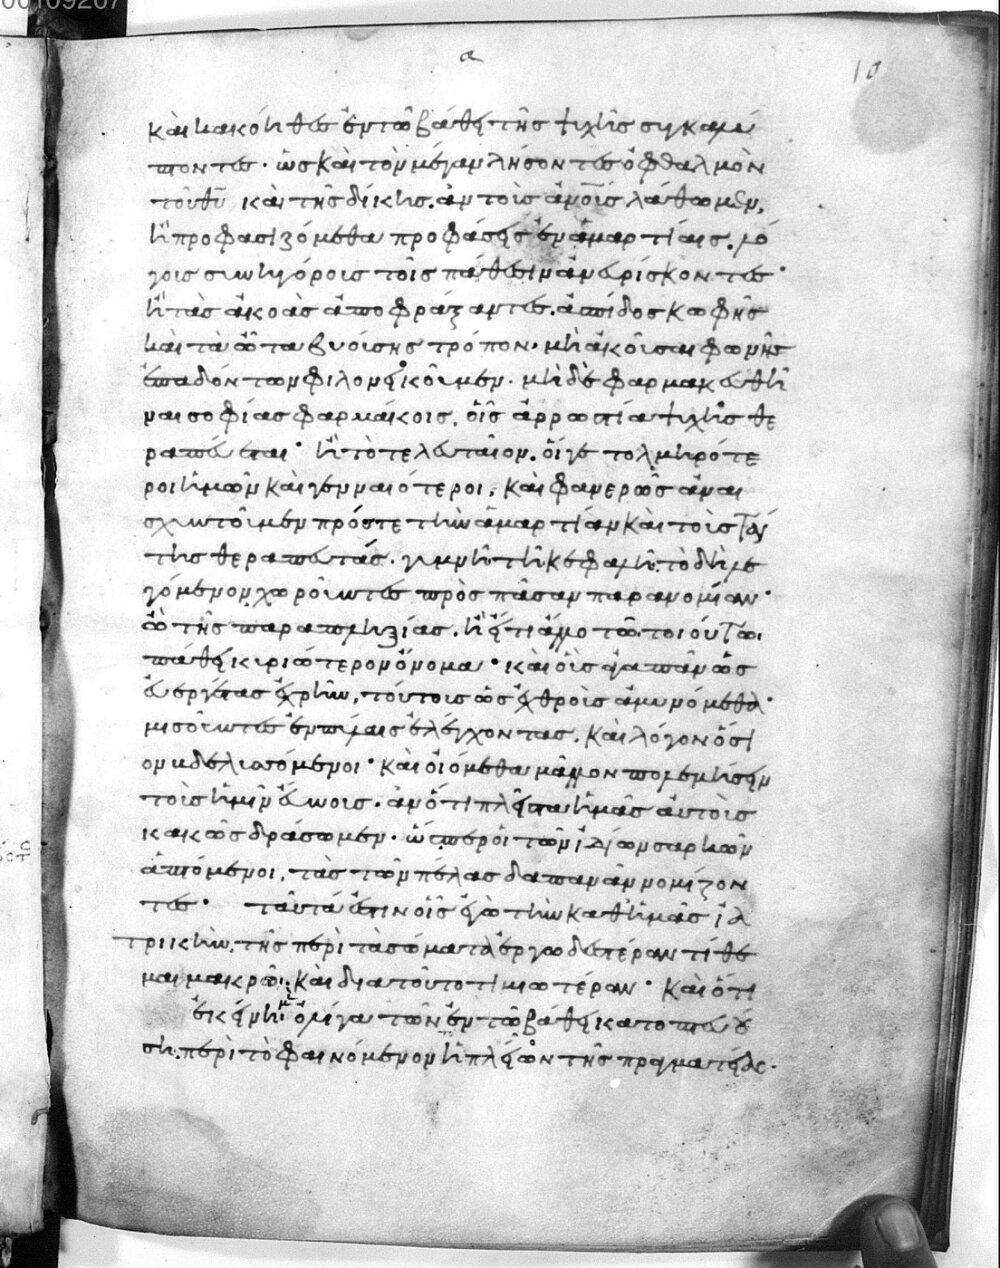 00109207
α
10
καὶ κακόηθες ἐν τῶ βάθει τῆς ψυχῆς συγκαλύ
πτοντες· ὡς καὶ τὸν μέγαν λήσοντες ὀφθαλμὸν
τοῦ θῦ καὶ τῆς δίκης, ἂν τοὺς ἀνους λάθωμεν,
ἢ προφασιζόμεθα προφάσεις ἐν ἁμαρτίαις, λό
γους συνηγόρους τοῖς πάθεσιν ἀνευρίσκοντες·
ἢ τὰς ἀκοὰς ἀποφράξαντες, ἀσπίδος κωφῆς
καὶ τὰ ὦτα βυούσης τρόπον, μὴ ἀκοῦσαι φωνῆς
ἐπαδόντων φιλονεικοῦμεν. μηδὲ φαρμακευθῆ
ναι σοφίας φαρμάκοις, οἷς ἀρρωστία ψυχῆς θε
ραπεύεται· ἢ τὸ τελευταῖον, οἵ γε τολμηρότε
ροι ἡμῶν καὶ γενναιότεροι, καὶ φανερῶς ἀναι
σχυντοῦμεν πρός τε τὴν ἁμαρτίαν καὶ τοὺς ταύ
της θεραπευτάς. γυμνῆ τῆ κεφαλῆ, τὸ δὴ λε
γόμενον, χωροῦντες πρὸς πᾶσαν παρανομίαν·
ὢ τῆς παραπληξίας, ἢ εἴ τι ἄλλο τῶ τοιούτω
πάθει κυριώτερον ὄνομα· καὶ οὓς ἀγαπᾶν ὡς
εὐεργέτας ἐχρῆν, τούτους ὡς ἐχθροὺς ἀμυνόμεθα·
μισοῦντες ἐν πύλαις ἐλέγχοντας, καὶ λόγον ὅσι
ον βδελυσσόμενοι· καὶ οἰόμεθα μᾶλλον πολεμήσειν
τοῖς ἡμῖν εὔνοις, ἂν ὅτι πλεῖστα ἡμᾶς αὐτοὺς
κακῶς δράσωμεν. ὥσπερ οἱ τῶν ἰδίων σαρκῶν
ἁπτόμενοι, τὰς τῶν πέλας δαπανᾶν νομίζον
τες· ταῦτά ἐστιν οἷς ἐγὼ τὴν καθ' ἡμᾶς ἰα
τρικὴν, τῆς περὶ τὰ σώματα ἐργωδεστέραν τίθε
μαι μακρῶ, καὶ διὰ τοῦτο τιμιωτέραν· καὶ ὅτι
ἐκείνη μὲν ὀλίγα τῶν ἐν τῶ βάθει κατοπτευού
ση, περὶ τὸ φαινόμενον ἡ πλείων τῆς πραγματείας·